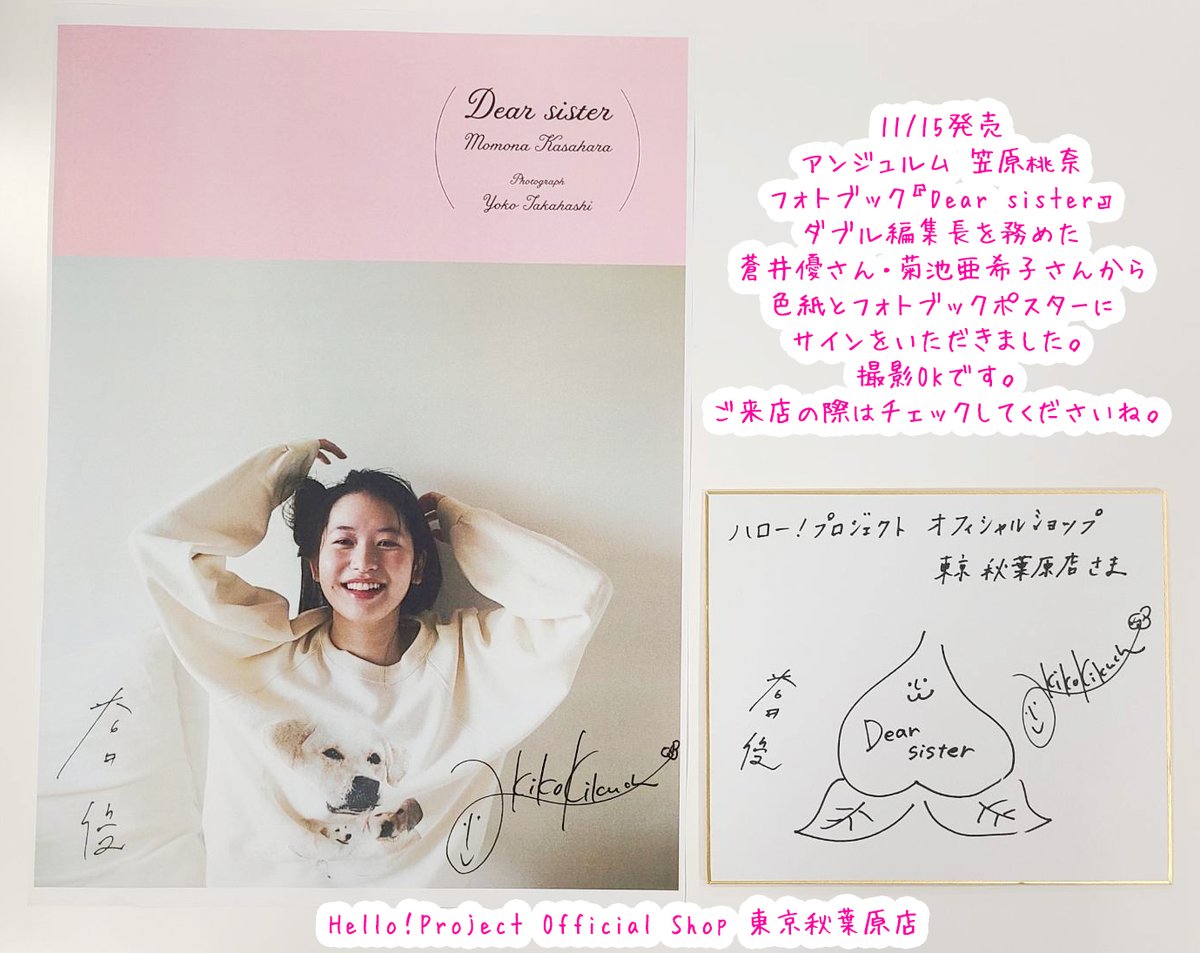 Dear sister
Momona Kasahara
Photograph
Yoko Takahashi
11/15発売
アンジュルム 笠原桃奈
フォトブック『Dear sister』
ダブル編集長を務めた
蒼井優さん・菊池亜希子さんから
色紙とフォトブックポスターに
サインをいただきました。
撮影OKです。
ご来店の際はチェックしてくださいね。
AkikoKikuchi
ハロー!プロジェクト オフィシャルショップ
東京 秋葉原店さま
Dear
sister
AkikoKikuchi
Hello!Project Official Shop 東京秋葉原店